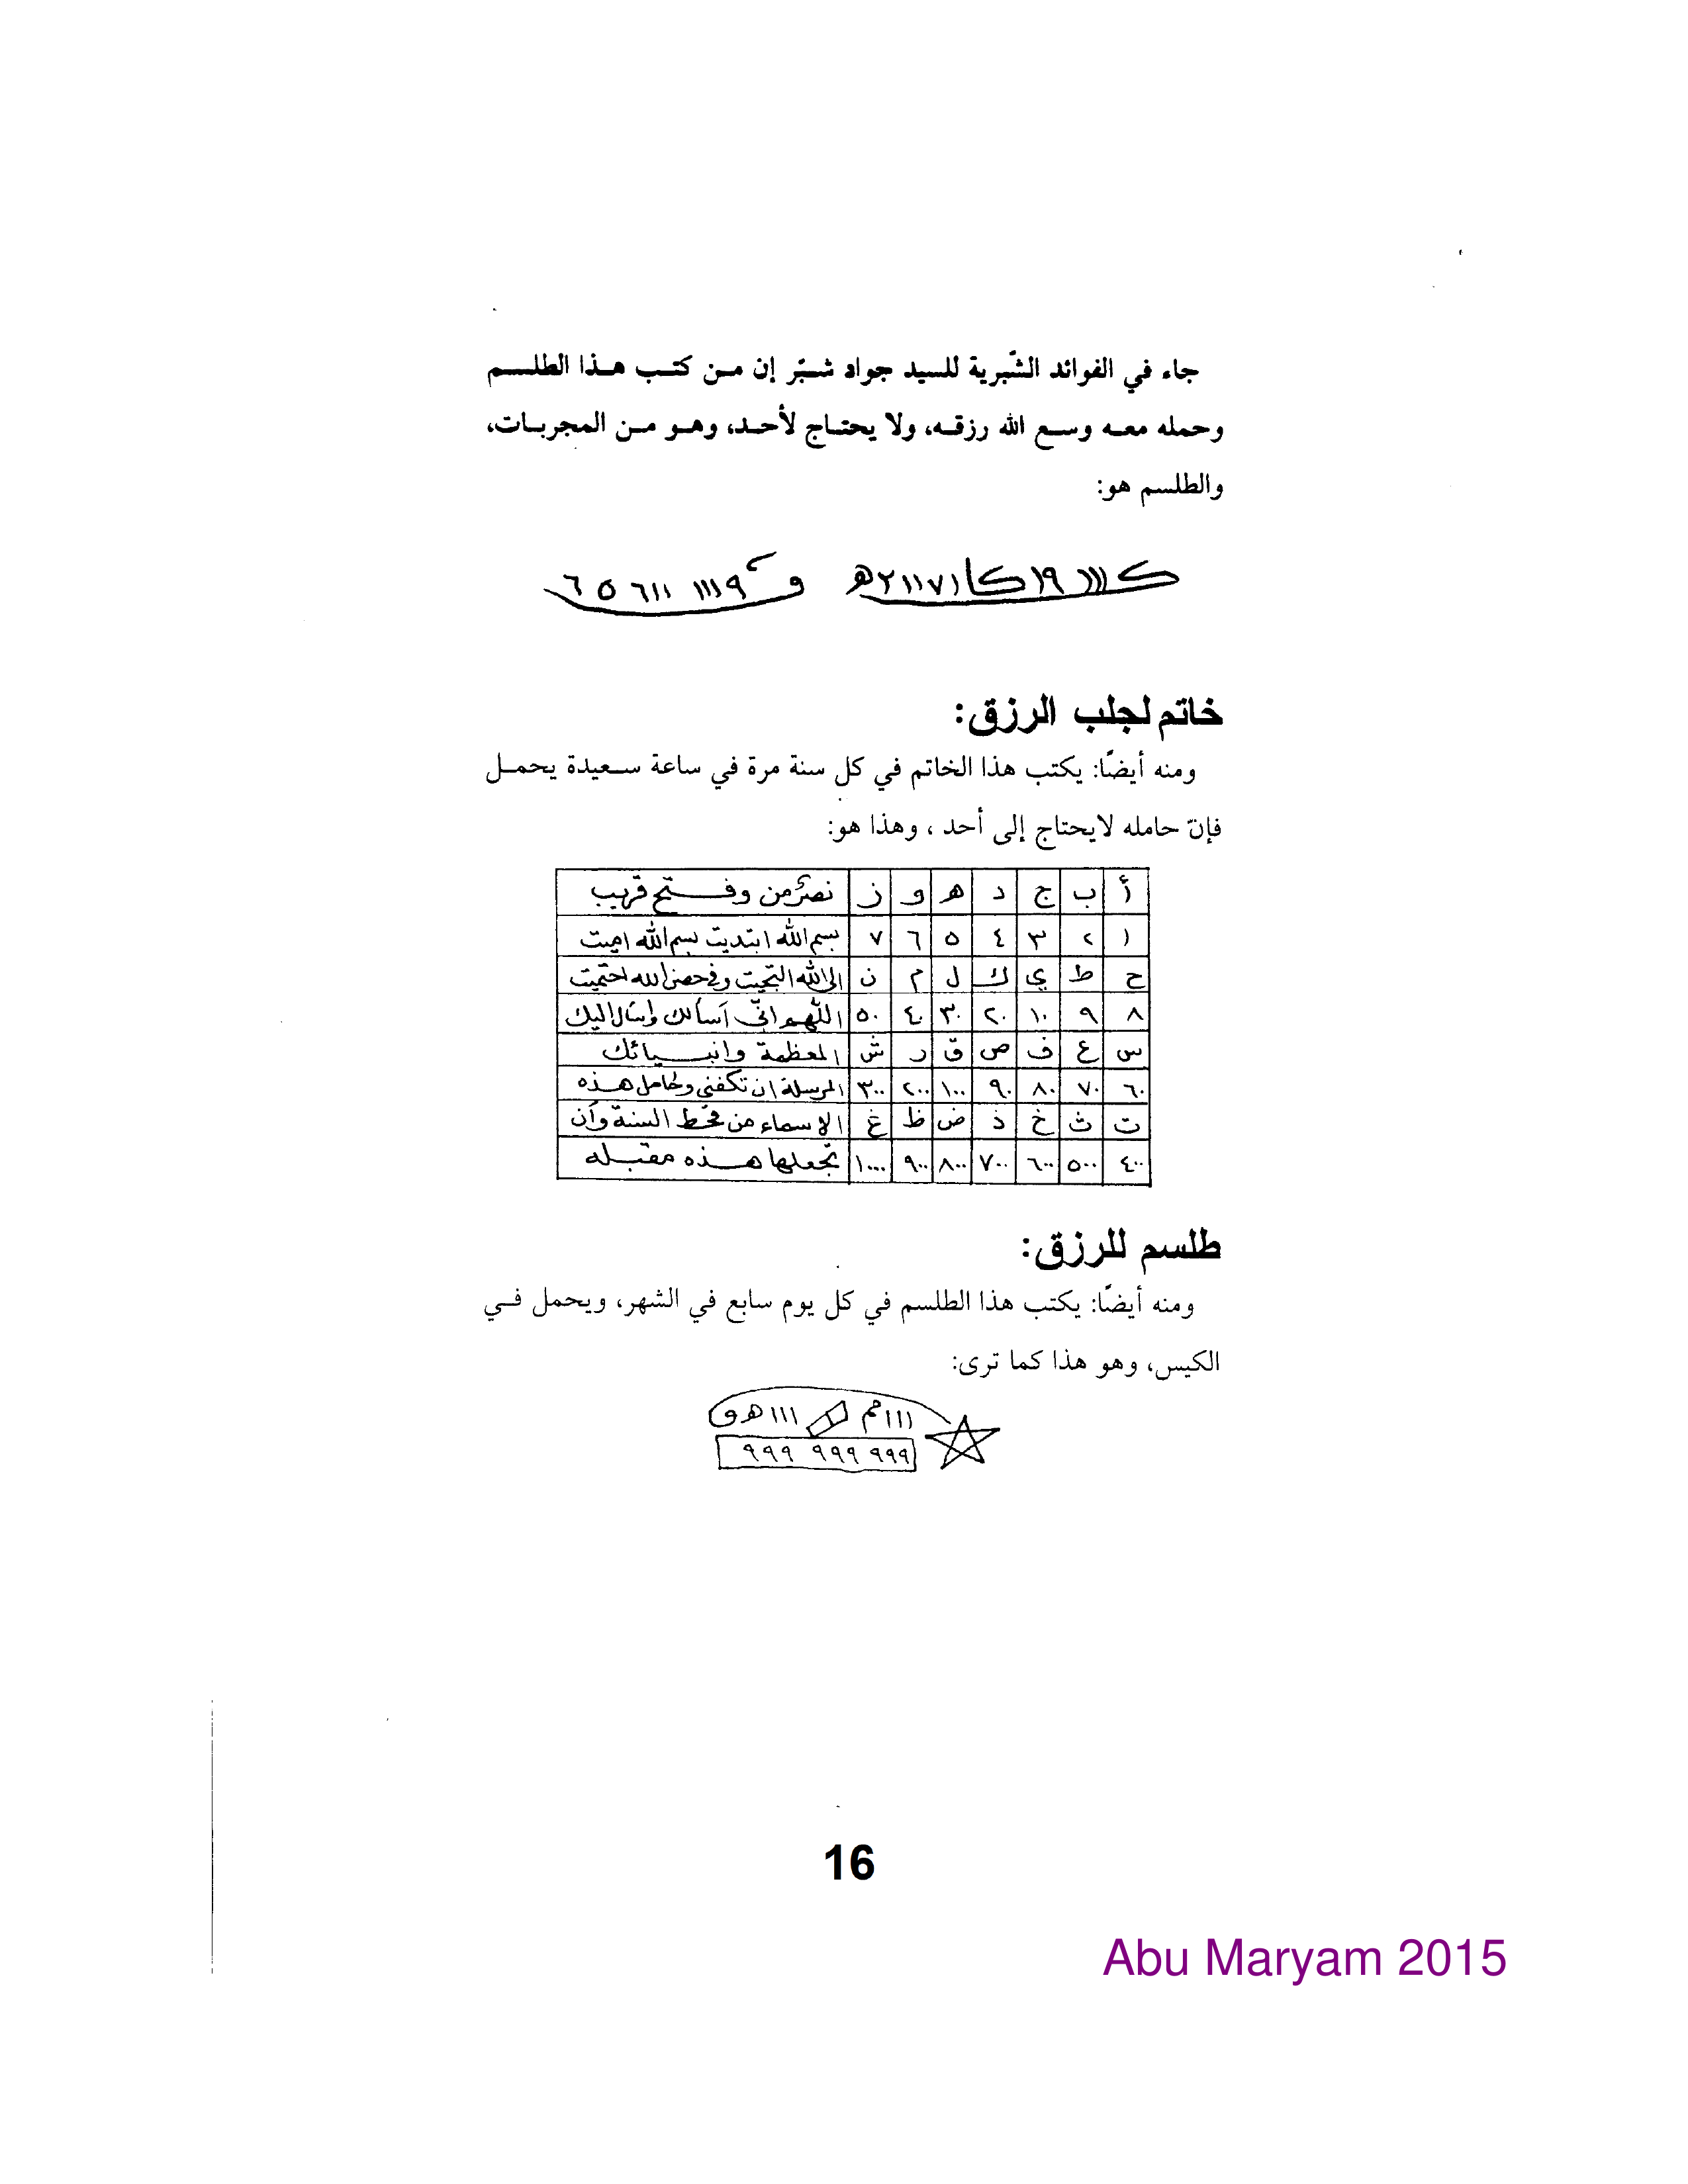 جاء في الفوائد الشّبرية للسيد جواد شبّر إن من كتب هذا الطلسم
وحمله معه وسع الله رزقه، ولا يحتاج لأحد، وهو من المجربات،
والطلسم هو:
خاتم لجلب الرزق:
ومنه أيضًا: يكتب هذا الخاتم في كل سنة مرة في ساعة سعيدة يحمل
فإنّ حامله لايحتاج إلى أحد ، وهذا هو:
أ ب ج د ه و ز نصرٌ من وفتح قريب
١ ٢ ٣ ٤ ٥ ٦ ٧ بسم الله ابتديت بسم الله
ح ط ي ك ل م ن الى الله التجيت وفي حصن الله احتميت
٨ ٩ ١٠ ٢٠ ٣٠ ٤٠ ٥٠ اللهم انّي أسألك وأسأل اليك
س ع ف ص ق ر ش المعظمة وانبيائك
٦٠ ٧٠ ٨٠ ٩٠ ١٠٠ ٢٠٠ ٣٠٠ المرسلة ان تكفني ولحامل هذه
ت ث خ ذ ض ظ غ الاسماء من قحط السنة وأن
٤٠٠ ٥٠٠ ٦٠٠ ٧٠٠ ٨٠٠ ٩٠٠ ١٠٠٠ تجعلها هذه مقبله
طلسم للرزق:
ومنه أيضًا: يكتب هذا الطلسم في كل يوم سابع في الشهر، ويحمل في
الكيس، وهو هذا كما ترى:
٩٩٩ ٩٩٩ ٩٩٩
16
Abu Maryam 2015